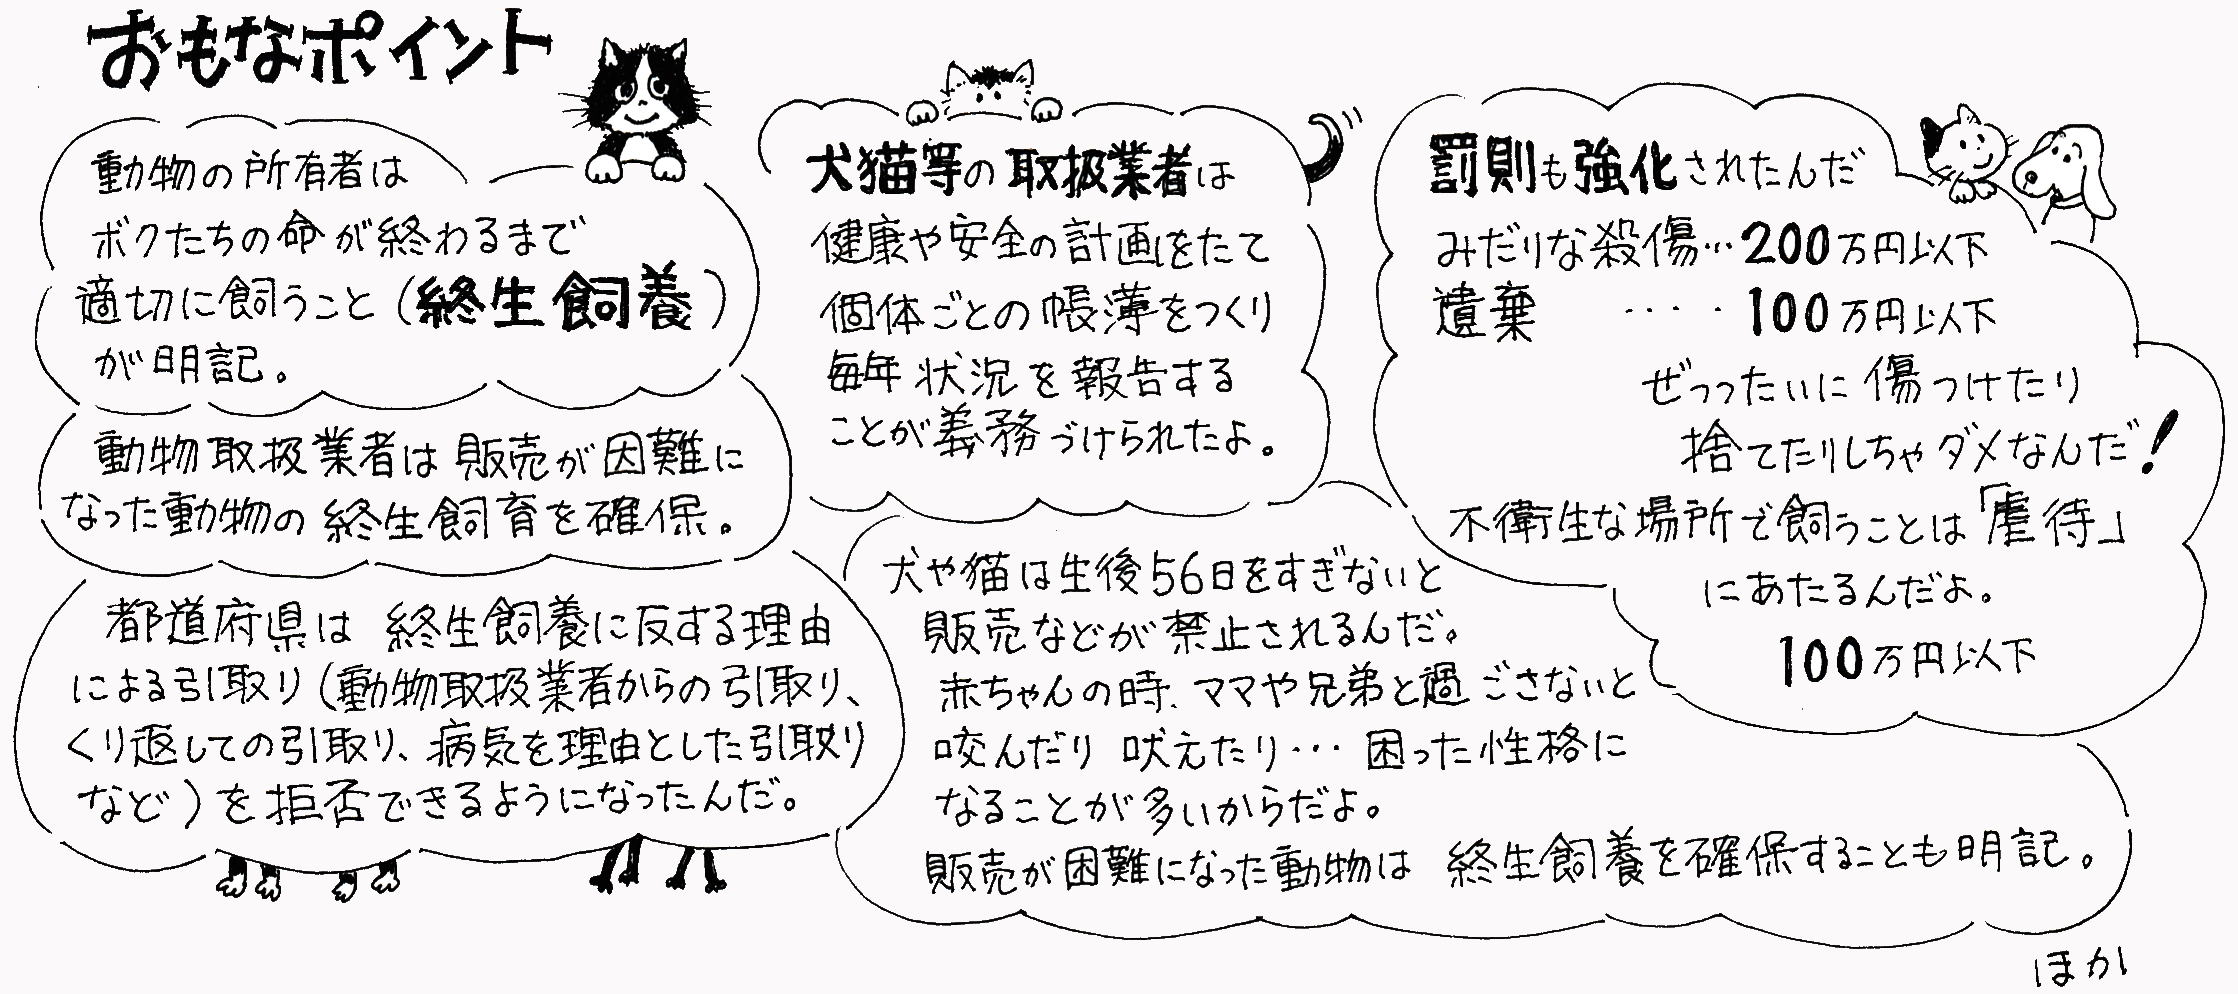 おもなポイント
動物の所有者は
ボクたちの命が終わるまで
適切に飼うこと（終生飼養）
が明記。
動物取扱業者は販売が困難に
なった動物の終生飼育を確保。
都道府県は 終生飼養に反する理由
による引取り（動物取扱業者からの引取り、
くり返しての引取り、病気を理由とした引取り
など）を拒否できるようになったんだ。
犬猫等の取扱業者は
健康や安全の計画をたて
個体ごとの帳簿をつくり
毎年 状況を報告する
ことが義務づけられたよ。
犬や猫は生後56日をすぎないと
販売などが禁止されるんだ。
赤ちゃんの時、ママや兄弟と過ごさないと
咬んだり 吠えたり… 困った性格に
なることが多いからだよ。
販売が困難になった動物は 終生飼養を確保することも明記。
罰則も強化されたんだ
みだりな殺傷…200万円以下
遺棄 ････100万円以下
ぜっったいに傷つけたり
捨てたりしちゃダメなんだ！
不衛生な場所で飼うことは「虐待」
にあたるんだよ。
100万円以下
ほか